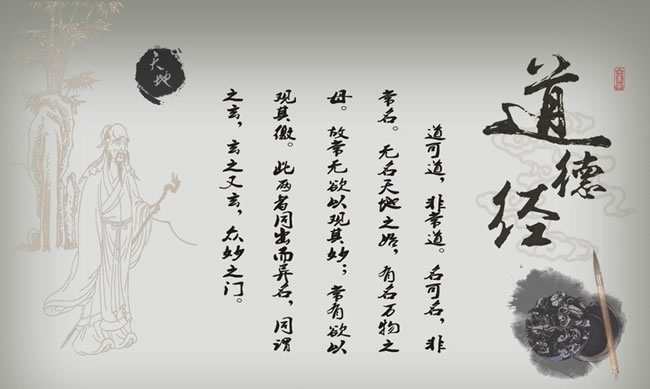 道德经
道可道，非常道。名可名，非
常名。无名天地之始，有名万物之
母。故常无欲以观其妙；常有欲以
观其徼。此两者同出而异名，同谓
之玄，玄之又玄，众妙之门。
天地